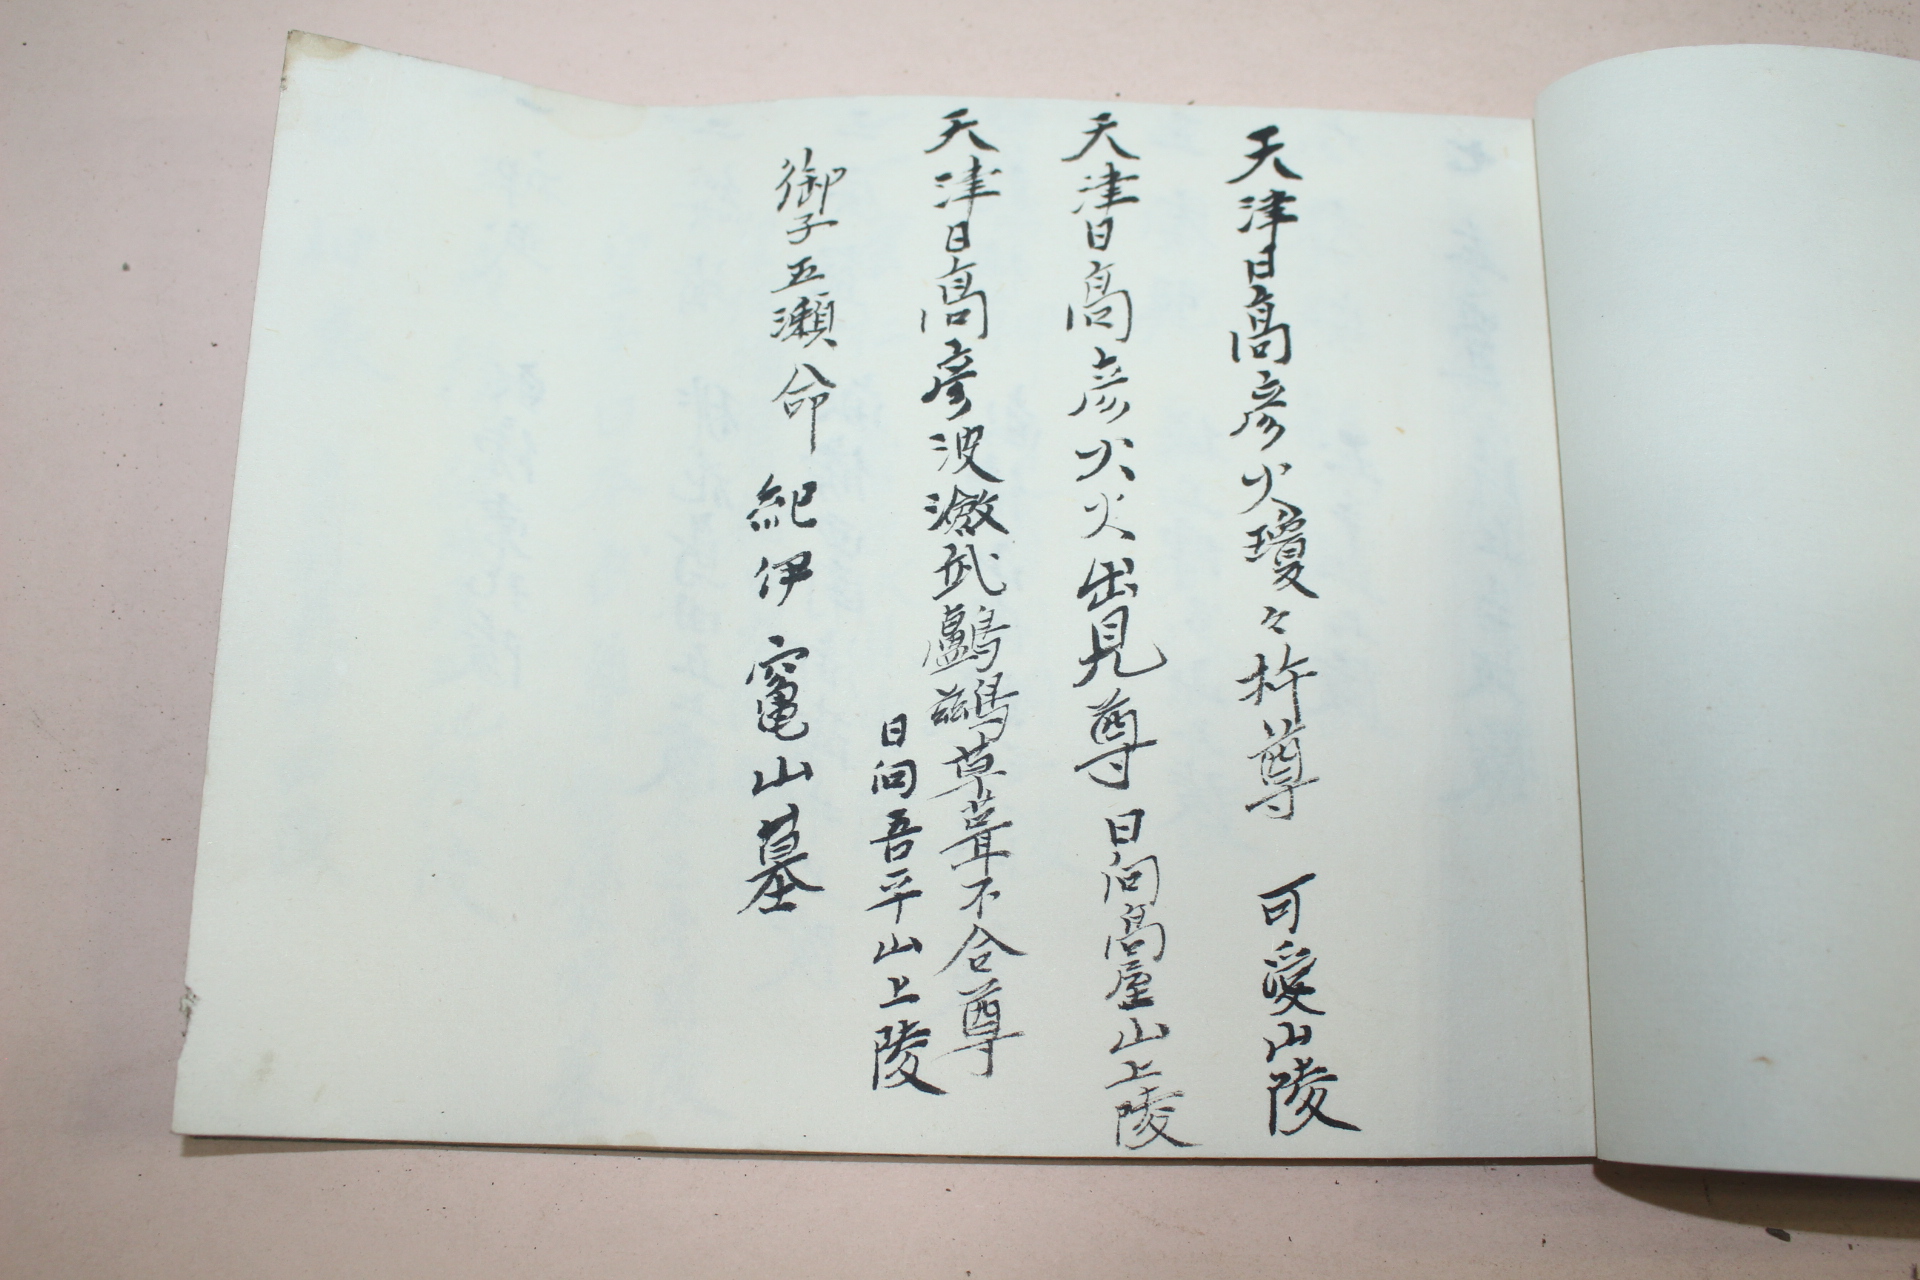 天津日高彦火瓊々杵尊　可愛山陵
天津日高彦火火出見尊　日向高屋山上陵
天津日高彦波瀲武鸕鷀草葺不合尊
日向吾平山上陵
御子五瀬命　紀伊竈山墓